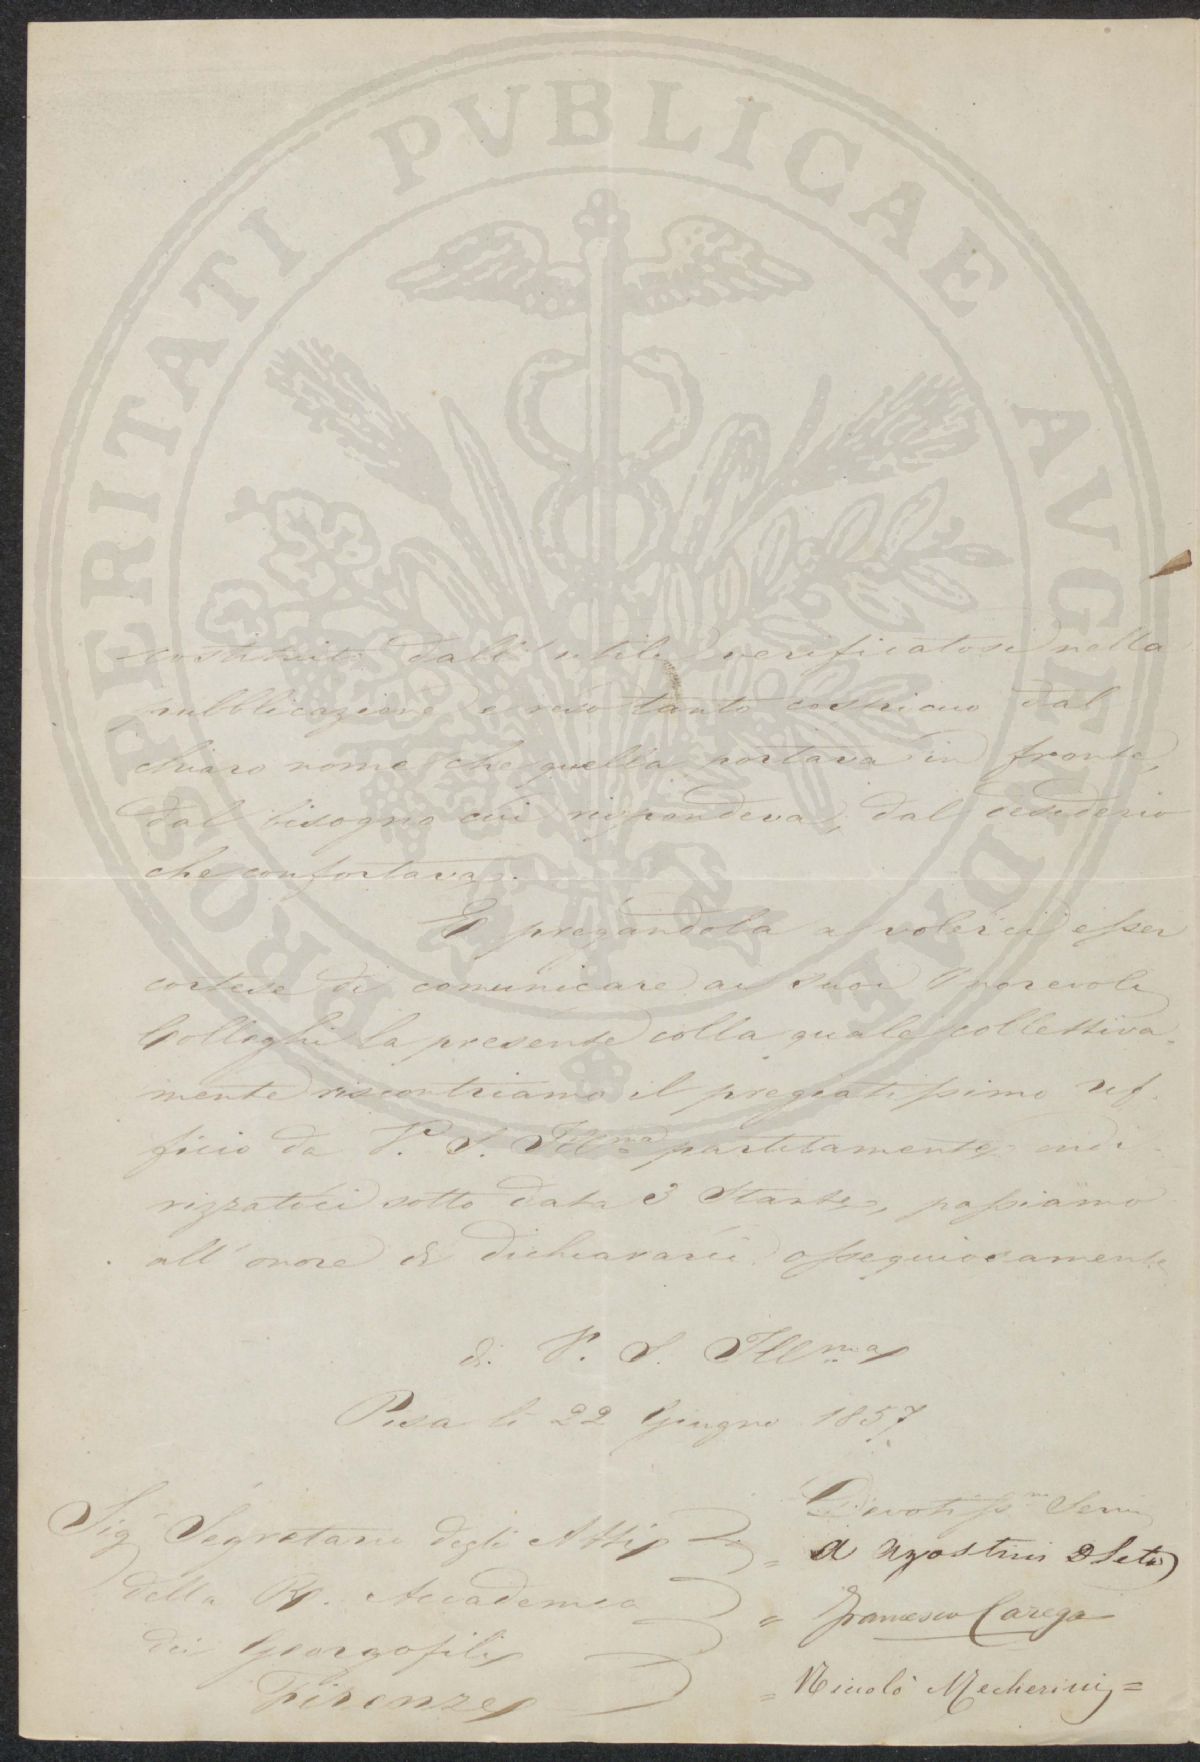 PROSPERITATI PVBLICAE AVGENDAE
costituito dall' utile verificatosi nella
pubblicazione e reso tanto cospicuo dal
chiaro nome che quella portava in fronte,
dal bisogno cui rispondeva, dal desiderio
che confortava.
E pregandola a volerci esser
cortese di comunicare ai suoi Onorevoli
Colleghi la presente colla quale collettiva-
mente riscontriamo il pregiatissimo uf-
ficio da V. S. Illma partitamente indi-
rizzatoci sotto data 3 Stante, passiamo
all' onore di dichiararci ossequiosamente
di V. S. Illma
Pisa li 22 Giugno 1857.
Sig Segretario degli Atti
della R. Accademia
dei Georgofili
Firenze
Devotissmi Servi
A Agostini D Seta
= Francesco Carega
= Niccolò Mecherini =